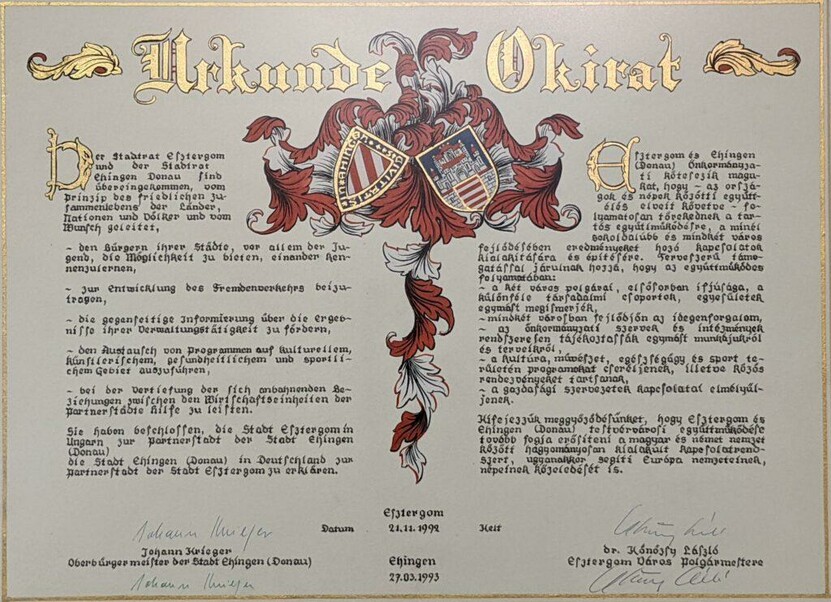 Urkunde Okirat
CIVITATIS
Der Stadtrat Esztergom
und der Stadtrat
Ehingen Donau sind
übereingekommen, vom
Prinzip des friedlichen Zu-
sammenlebens der Länder,
Nationen und Völker und vom
Wunsch geleitet,
- den Bürgern ihrer Städte, vor allem der Ju-
gend, die Möglichkeit zu bieten, einander ken-
nenzulernen,
- zur Entwicklung des Fremdenverkehrs beizu-
tragen,
- die gegenseitige Informierung über die Ergeb-
nisse ihrer Verwaltungstätigkeit zu fördern,
- den Austausch von Programmen auf kulturellem,
künstlerischem, gesundheitlichem und sportli-
chem Gebiet auszuführen,
- bei der Vertiefung der sich anbahnenden Be-
ziehungen zwischen den Wirtschaftseinheiten der
Partnerstädte Hilfe zu leisten.
Sie haben beschlossen, die Stadt Esztergom in
Ungarn zur Partnerstadt der Stadt Ehingen
(Donau)
die Stadt Ehingen (Donau) in Deutschland zur
Partnerstadt der Stadt Esztergom zu erklären.
Esztergom és Ehingen
(Donau) Önkormányza-
ti kötelezik magu-
kat, hogy - az orszá-
gok és népek közötti együtt-
élés elveit követve - fo-
lyamatosan törekednek a tar-
tós együttműködésre, a minél
sokoldalúbb és mindkét város
fejlődésében eredményeket hozó kapcsolatok
kialakítására és építésére. Tervszerű támo-
gatással járulnak hozzá, hogy az együttműködés
folyamatában:
- a két város polgárai, elsősorban ifjúsága, a
különféle társadalmi csoportok, egyesületek
egymást megismerjék,
- mindkét városban fejlődjön az idegenforgalom,
- az önkormányzati szervek és intézmények
rendszeresen tájékoztassák egymást munkájukról
és terveikről,
- a kultúra, művészet, egészségügy és sport te-
rületén programokat cseréljenek, illetve közös
rendezvényeket tartsanak,
- a gazdasági szervezetek kapcsolatai elmélyül-
jenek.
Kifejezzük meggyőződésünket, hogy Esztergom és
Ehingen (Donau) testvérvárosi együttműködése
tovább fogja erősíteni a magyar és német nemzet
között hagyományosan kialakult kapcsolatrend-
szert, ugyanakkor segíti Európa nemzeteinek,
népeinek közeledését is.
Esztergom
Datum 21.11.1992 Kelt
Johann Krieger
Johann Krieger
Oberbürgermeister der Stadt Ehingen (Donau)
Johann Krieger
Ehingen
27.03.1993
dr. Könözsy László
Esztergom Város Polgármestere